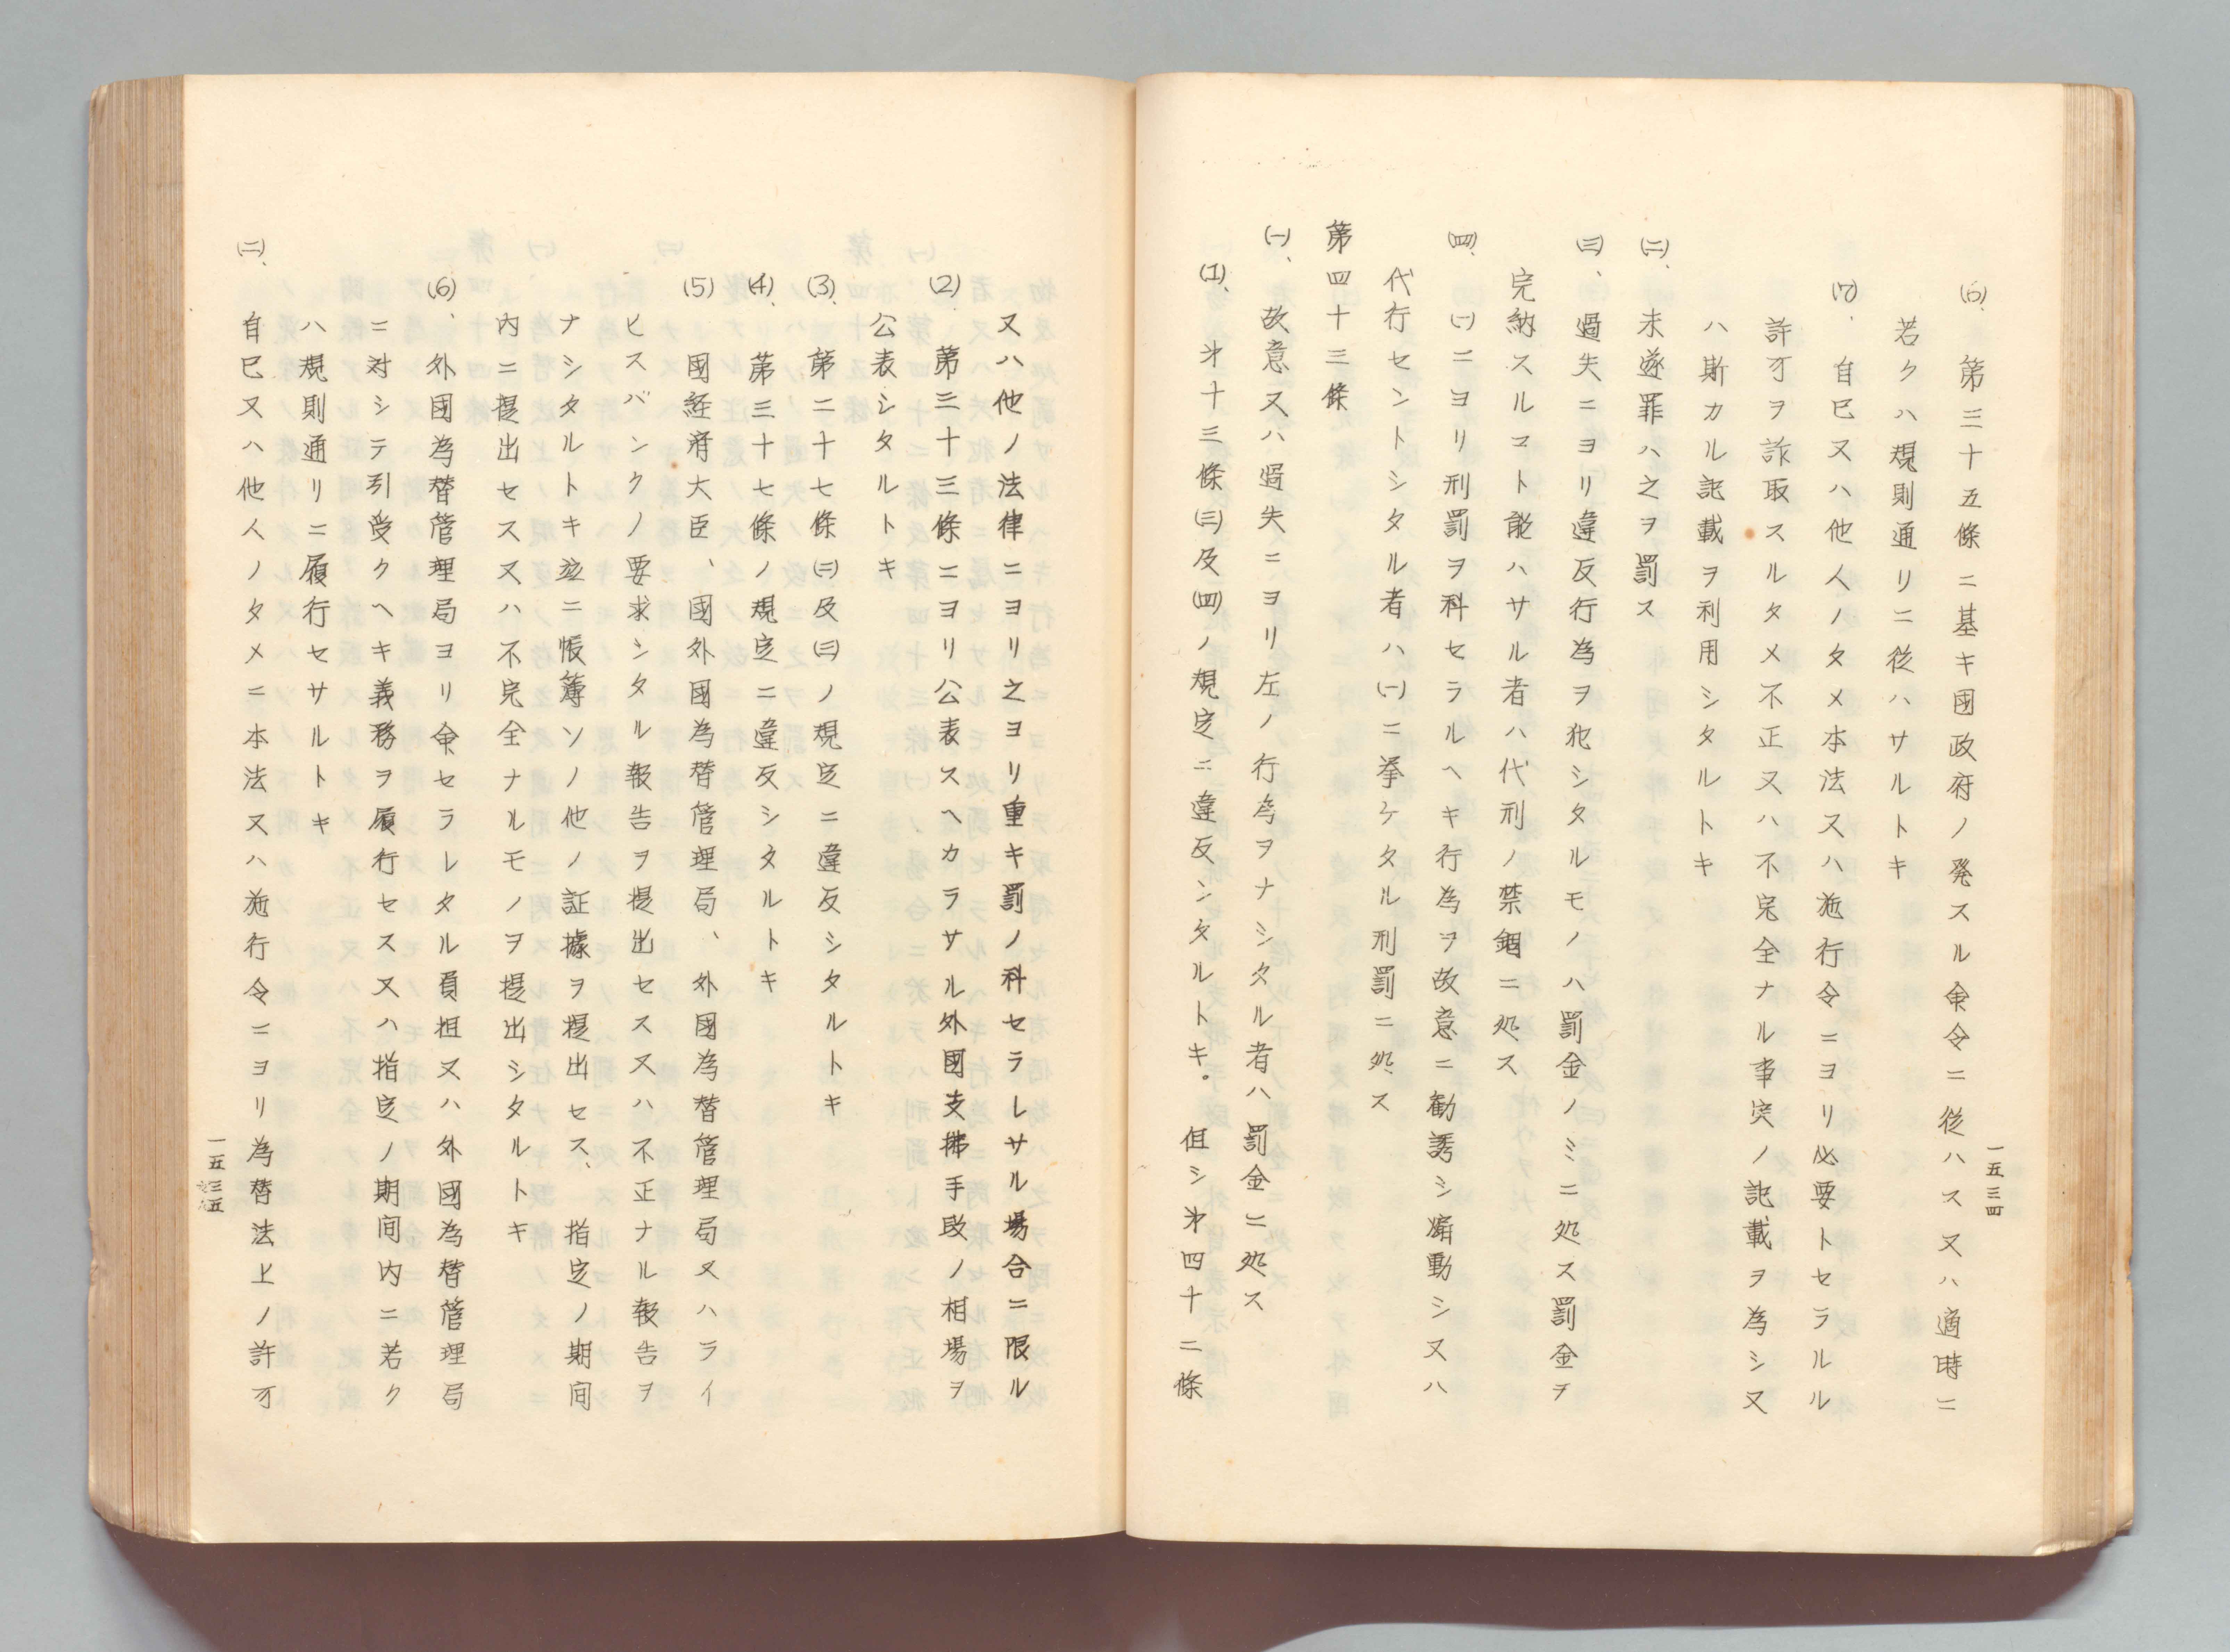 一五三四
(6)、第三十五條ニ基キ國政府ノ発スル命令ニ從ハス又ハ適時ニ
若クハ規則通リニ從ハサルトキ
(7)、自己又ハ他人ノタメ本法又ハ施行令ニヨリ必要トセラルル
許可ヲ詐取スルタメ不正又ハ不完全ナル事実ノ記載ヲ為シ又
ハ斯カル記載ヲ利用シタルトキ
(二)、未遂罪ハ之ヲ罰ス
(三)、過失ニヨリ違反行為ヲ犯シタルモノハ罰金ノミニ処ス罰金ヲ
完納スルコト能ハサル者ハ代刑ノ禁錮ニ処ス
(四)、(一)ニヨリ刑罰ヲ科セラルヘキ行為ヲ故意ニ勧誘シ煽動シ又ハ
代行セントシタル者ハ(一)ニ挙ケタル刑罰ニ処ス
第四十三條
(一)、故意又ハ過失ニヨリ左ノ行為ヲナシタル者ハ罰金ニ処ス
(1)、第十三條(三)及(四)ノ規定ニ違反シタルトキ。但シ第四十二條
又ハ他ノ法律ニヨリ之ヨリ重キ罰ノ科セラレサル場合ニ限ル
(2)、第三十三條ニヨリ公表スヘカラサル外國支拂手段ノ相場ヲ
公表シタルトキ
(3)、第二十七條(二)及(三)ノ規定ニ違反シタルトキ
(4)、第三十七條ノ規定ニ違反シタルトキ
(5)、國経済大臣、國外國為替管理局、外國為替管理局又ハライ
ヒスバンクノ要求シタル報告ヲ提出セス又ハ不正ナル報告ヲ
ナシタルトキ並ニ帳簿ソノ他ノ証據ヲ提出セス、指定ノ期間
内ニ提出セス又ハ不完全ナルモノヲ提出シタルトキ
(6)、外國為替管理局ヨリ命セラレタル負担又ハ外國為替管理局
ニ対シテ引受クヘキ義務ヲ履行セス又ハ指定ノ期间内ニ若ク
ハ規則通リニ履行セサルトキ
(二)、自己又ハ他人ノタメニ本法又ハ施行令ニヨリ為替法上ノ許可
一五三五